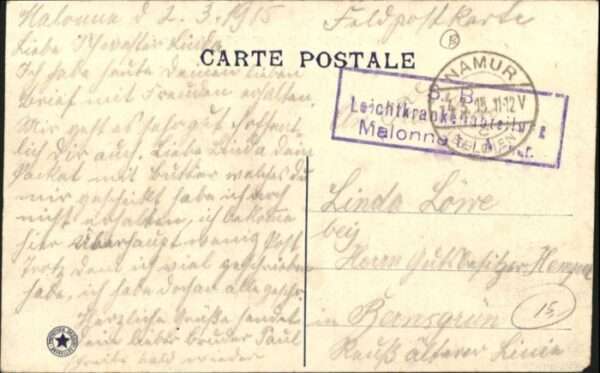 Malonne d 2.3.1915
Liebe Schwester Linda
Ich habe heute Deinen lieben
Brief mit Freuden erhalten.
Mir geht es sehr gut hoffent-
lich Dir auch. Liebe Linda dein
Packet mit Butter welches du
mir geschickt habe ich noch
nicht erhalten, ich bekomme
hier überhaupt wenig Post
Trotz dem ich viel geschrieben
habe, ich habe doch an alle geschr.
Herzliche Grüße sendet
dein lieber bruder Paul
Schreibe bald wieder
Feldpostkarte
CARTE POSTALE
NAMUR
4.3.15. 11-12 V
(BELGIEN)
S. B.
Leichtkrankenabteilung
Malonne
Linda Löwe
bey
Herrn Gutsbesitzer Hempel
in Bernsgrün
Reuß älterer Linie
15